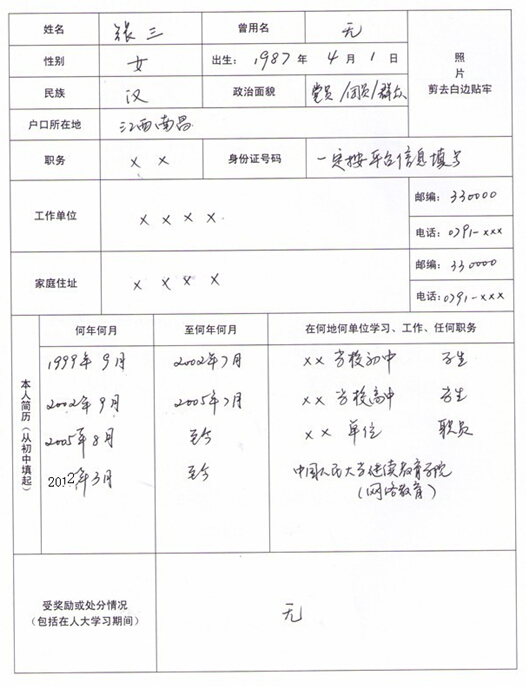 姓名 张三 曾用名 无
性别 女 出生：1987年4月1日
照
片
剪去白边贴牢
民族 汉 政治面貌 党员/团员/群众
户口所在地 江西南昌
职务 ×× 身份证号码 一定按平台信息填写
工作单位 ×××× 邮编：330000
电话：0791-×××
家庭住址 ×××× 邮编：330000
电话：0791-×××
本人简历（从初中填起）
何年何月 至何年何月 在何地何单位学习、工作、任何职务
1999年9月 2002年7月 ××学校初中 学生
2002年9月 2005年7月 ××学校高中 学生
2005年8月 至今 ××单位 职员
2012年3月 至今 中国人民大学继续教育学院
（网络教育）
受奖励或处分情况
（包括在人大学习期间）
无